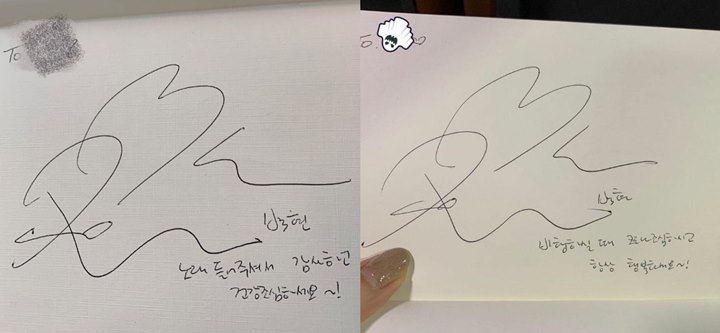 To
백현
노래 들어주셔서 감사하고
건강조심하세요~!
To.
백현
비행하실 때 코로나조심하시고
항상 행복하세요~!